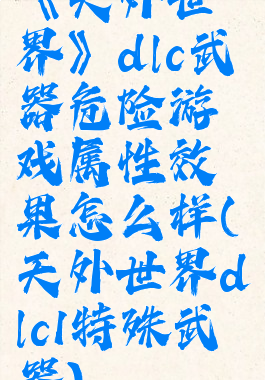 《天外世
界》dlc武
器危险游
戏属性效
果怎么样(
天外世界d
lc1特殊武
器)